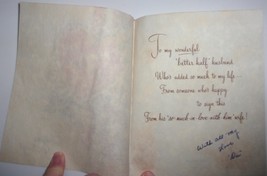 To my wonderful
"better half" husband
Who's added so much to my life...
From someone who's happy
to sign this
From his "so-much-in-love-with-him" wife!
With all my
love